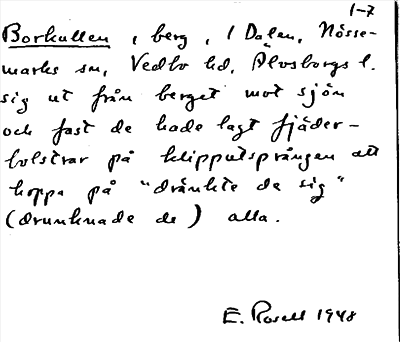 1-7
Borkullen, berg, I Dalen, Nösse-
marks sn, Vedbo hd, Älvsborgs l.
sig ut från berget mot sjön
och fast de hade lagt fjäder-
bolstrar på klipputsprången att
hoppa på "dränkte de sig"
(drunknade de) alla.
E. Rosell 1948